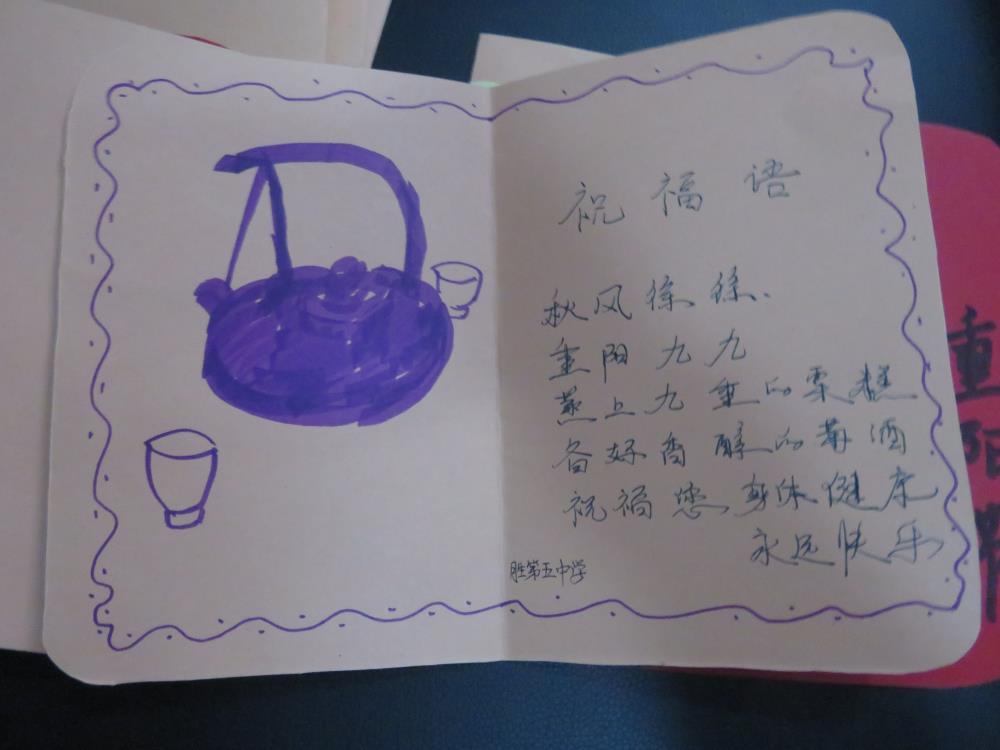 祝福语
秋风徐徐.
重阳九九
蒸上九重的栗糕
备好香醇的菊酒
祝福您身体健康
永远快乐
胜第五中学
重阳节